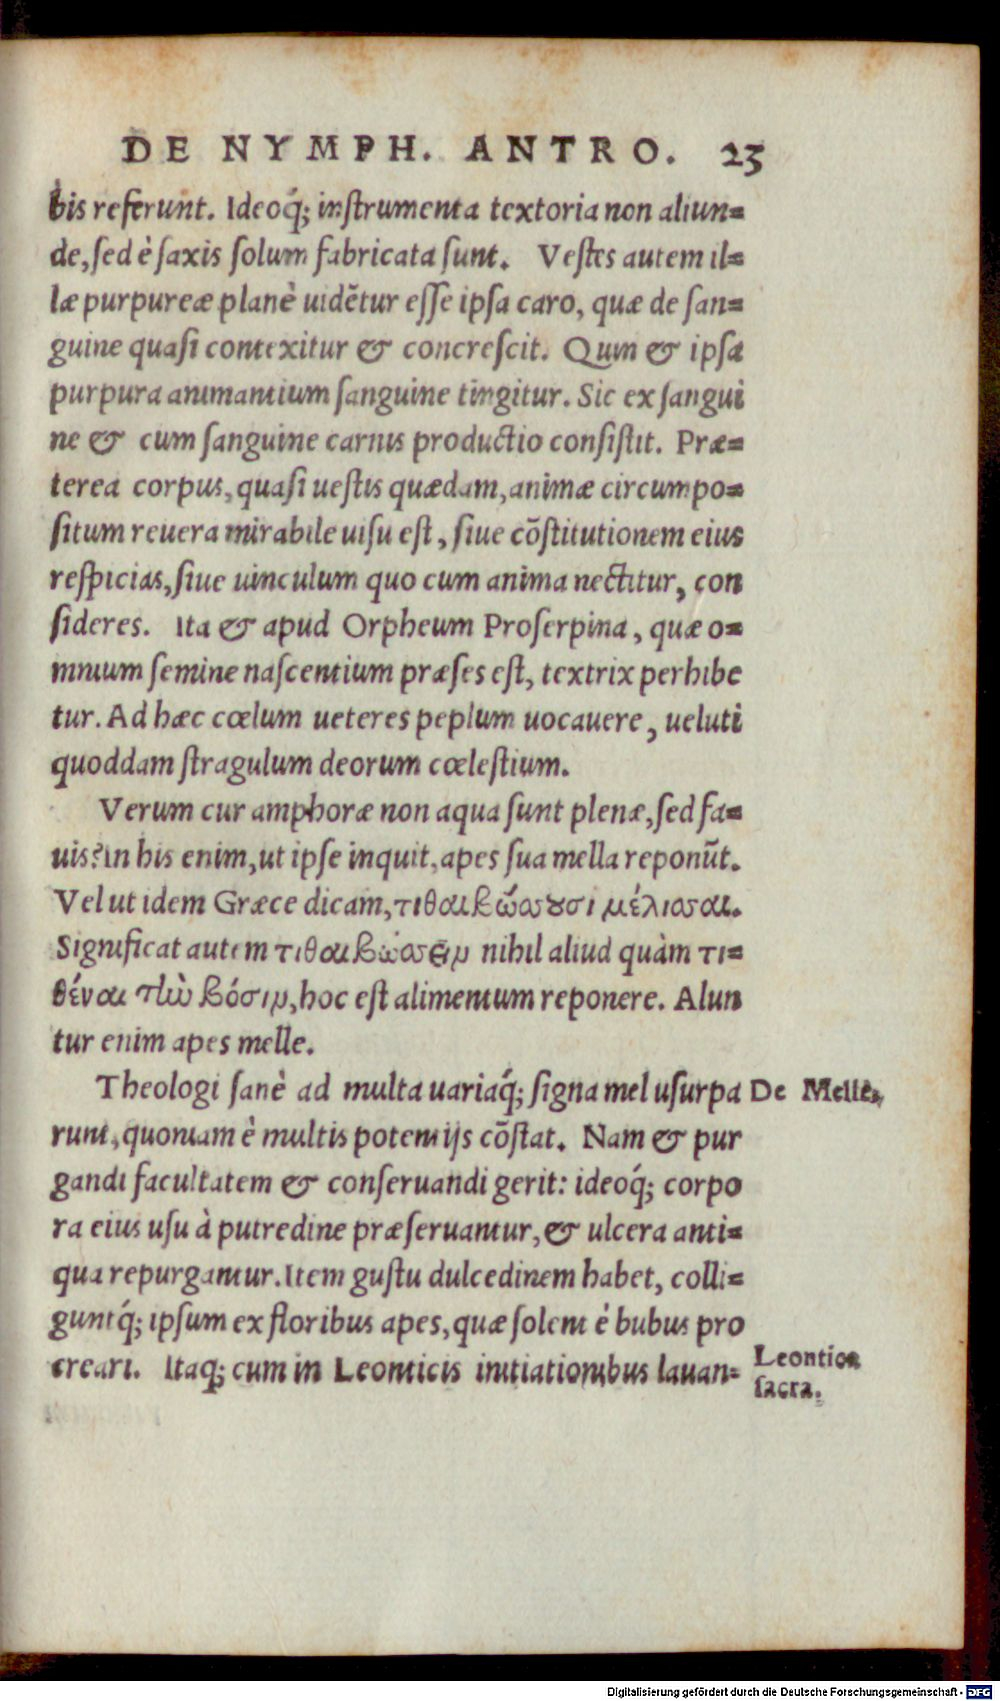 DE NYMPH. ANTRO. 23
bis referunt. Ideoq́; instrumenta textoria non aliun=
de, sed è saxis solum fabricata sunt. Vestes autem il=
læ purpureæ planè uidẽtur esse ipsa caro, quæ de san=
guine quasi contexitur & concrescit. Qum & ipsa
purpura animantium sanguine tingitur. Sic ex sangui
ne & cum sanguine carnis productio consistit. Præ=
terea corpus, quasi uestis quædam, animæ circumpo=
situm reuera mirabile uisu est, siue cõstitutionem eius
respicias, siue uinculum quo cum anima nectitur, con
sideres. Ita & apud Orpheum Proserpina, quæ o=
mnium semine nascentium præses est, textrix perhibe
tur. Ad hæc cœlum ueteres peplum uocauere, ueluti
quoddam stragulum deorum cœlestium.
Verum cur amphoræ non aqua sunt plenæ, sed fa=
uis? in his enim, ut ipse inquit, apes sua mella reponũt.
Vel ut idem Græce dicam, τιθαιβώσουσι μέλισσαι.
Significat autem τιθαιβώσσειν nihil aliud quàm τι=
θέναι τὴν βόσιν, hoc est alimentum reponere. Alun
tur enim apes melle.
Theologi sanè ad multa uariaq́; signa mel usurpa
De Melle.
runt, quoniam è multis potentijs cõstat. Nam & pur
gandi facultatem & conseruandi gerit: ideoq́; corpo
ra eius usu à putredine præseruantur, & ulcera anti=
qua repurgantur. Item gustu dulcedinem habet, colli=
guntq́; ipsum ex floribus apes, quæ solent è bubus pro
creari. Itaq; cum in Leonticis initiationibus lauan=
Leontica
sacra.
Digitalisierung gefördert durch die Deutsche Forschungsgemeinschaft - DFG